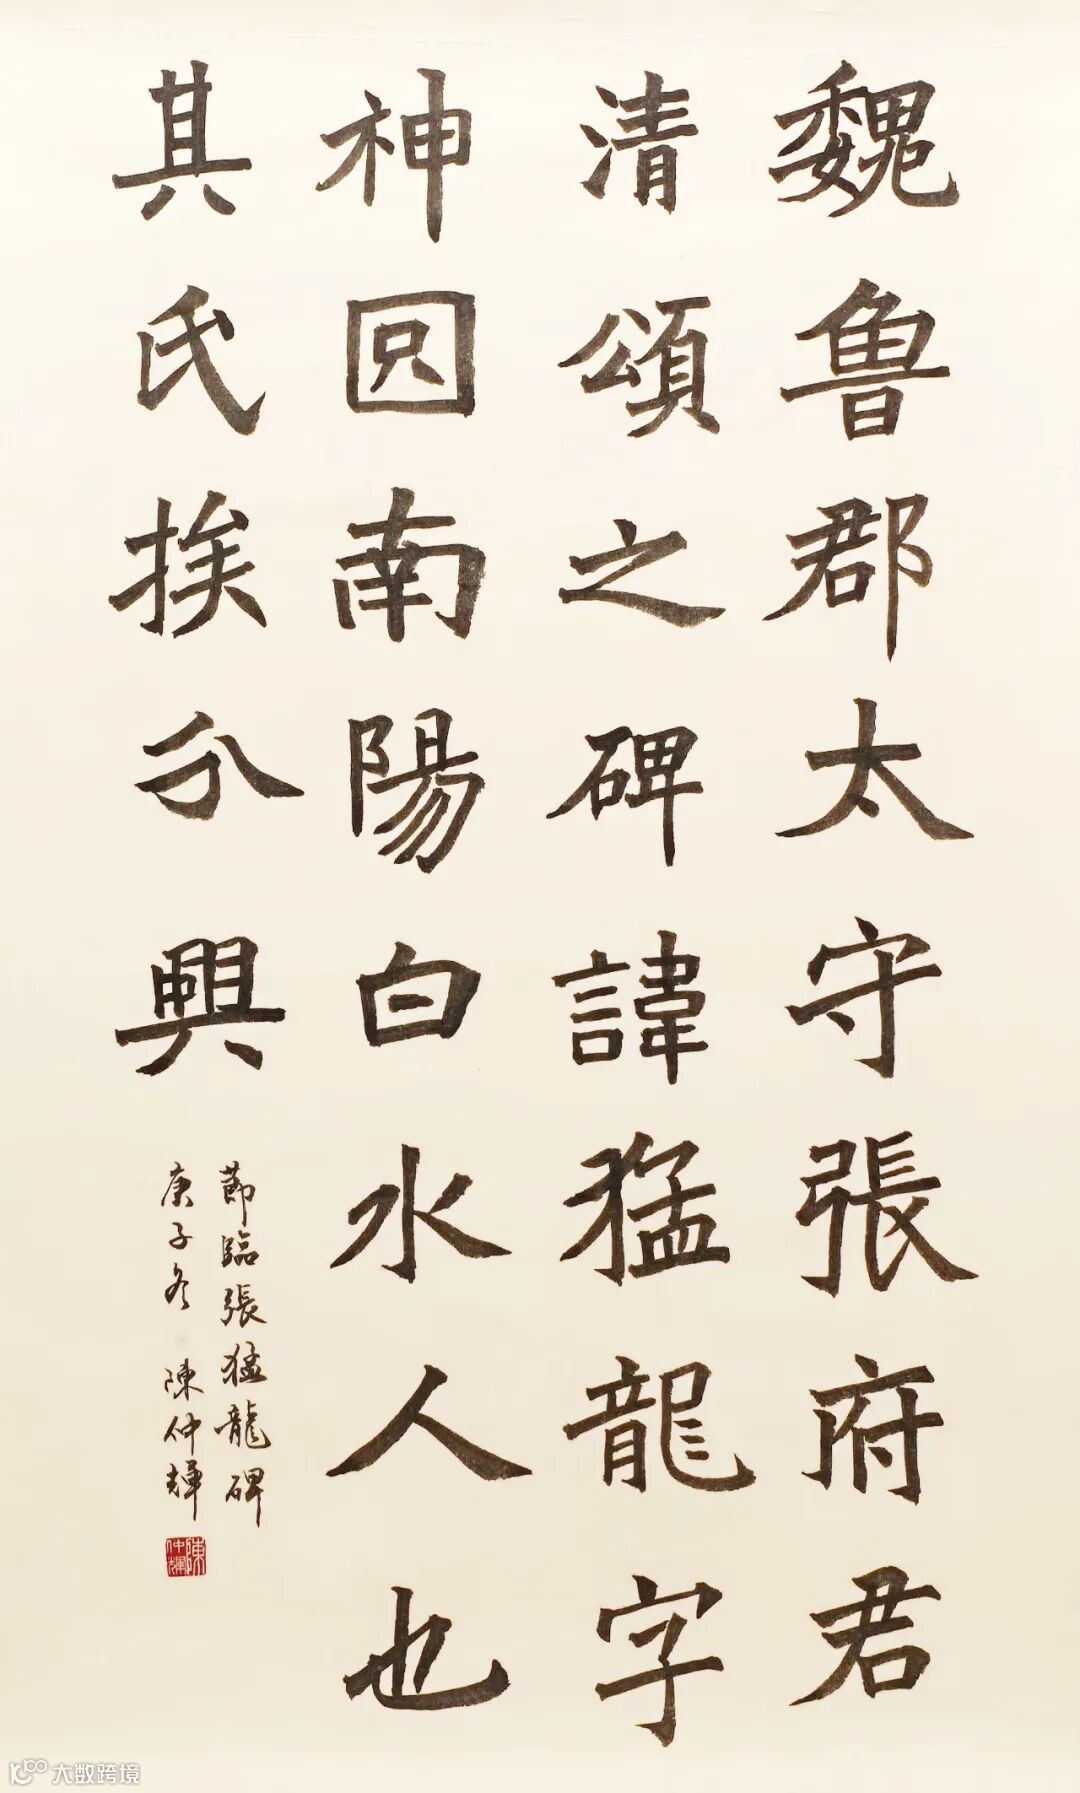 魏魯郡太守張府君
清頌之碑諱猛龍字
神囧南陽白水人也
其氏族分興
節臨張猛龍碑
庚子冬 陳仲輝
陳仲輝
大数跨境